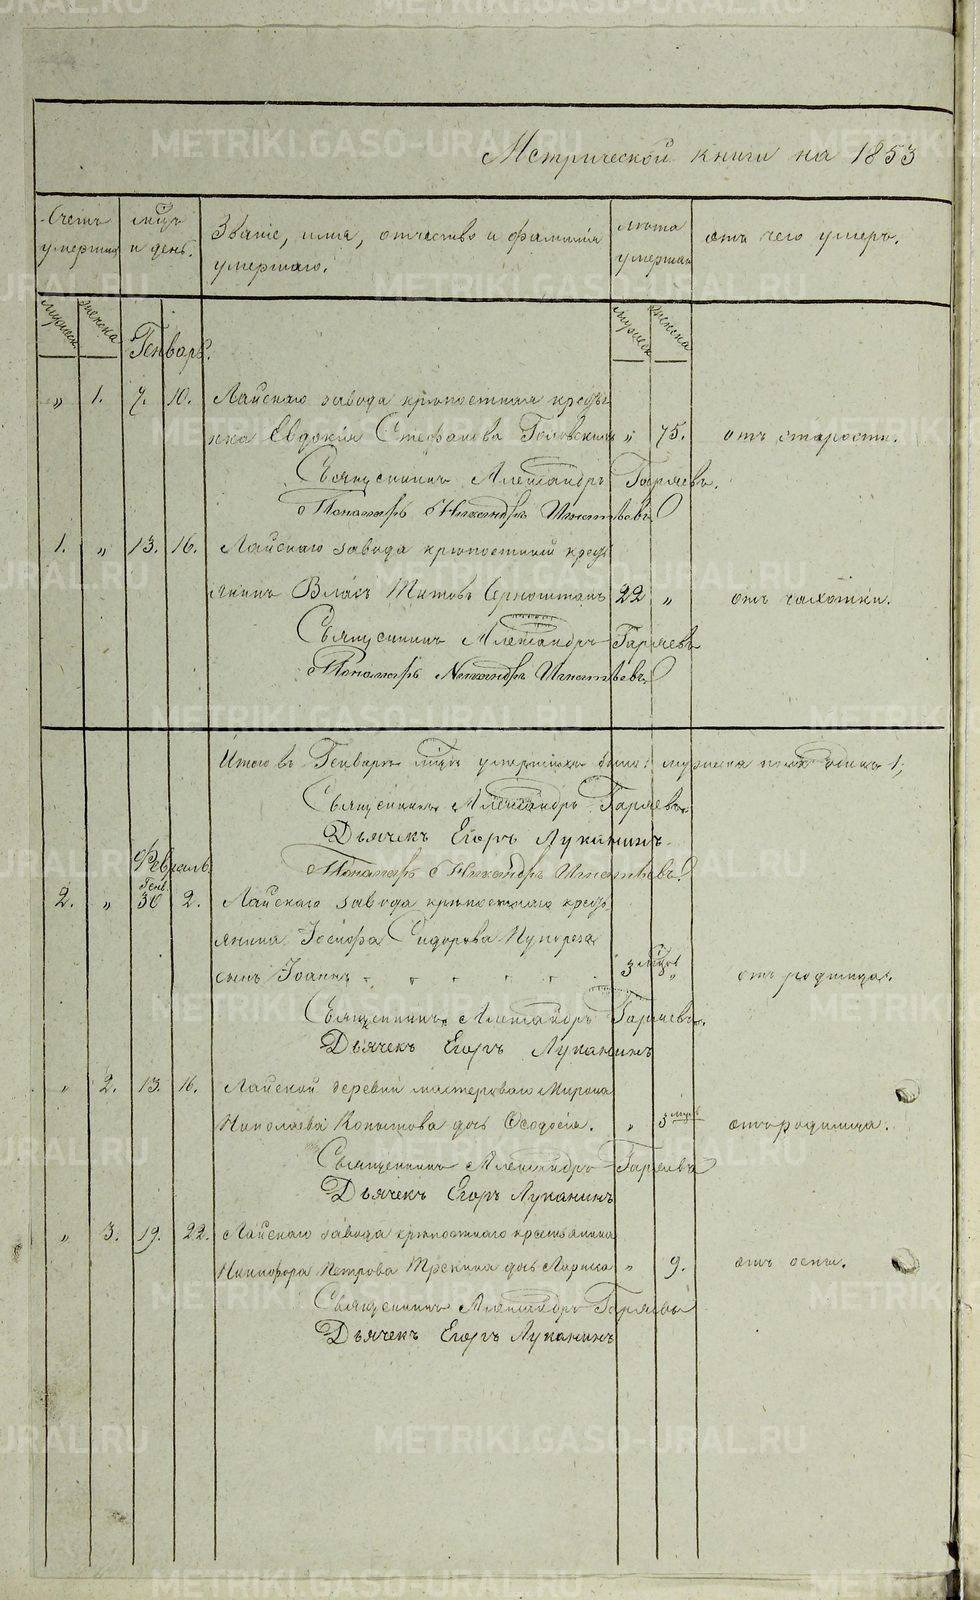 Метрической книги на 1853
Счетъ умершихъ
мѣсцъ и день.
Званіе, имя, отчество и фамилія
умершаго.
лѣта умершаго
отъ чего умеръ.
мужеск. женска
мужеск женска
Генварь.
„ 1. 7. 10. Лайскаго завода крѣпостная кресть
янка Евдокія Стефанова „ 75. отъ старости.
Священникъ Александръ Гаряевъ.
Пономарь Никандръ Игнатьевъ
1. „ 13. 16. Лайскаго завода крѣпостный кресть
янинъ Власъ Титовъ 22 „ отъ чахотки.
Священникъ Александръ Гаряевъ
Пономарь Никандръ Игнатьевъ
Итого въ Генварѣ мѣсцѣ умершихъ было: мужеска пола одинъ 1,
Священникъ Александръ Гаряевъ.
Дьячекъ Егоръ Луканинъ.
Пономарь Никандръ Игнатьевъ.
Февраль.
Генв.
2. „ 30 2. Лайскаго завода крѣпостнаго кресть
янина Іосифа Сидорова Пупореза
сынъ Іоаннъ 3 мѣсцов „ отъ родимца.
Священникъ Александръ Гаряевъ.
Дьячекъ Егоръ Луканинъ
„ 2. 13. 16. Лайской деревни мастероваго Мирона
Николаева Копытова дочь Ѳеодосія. „ 5 мѣсцъ отъ родимца.
Священникъ Александръ Гаряевъ
Дьячекъ Егоръ Луканинъ
„ 3. 19. 22. Лайскаго завода крѣпостнаго крестьянина
Никифора Петрова дочь Лариса „ 9. отъ оспы.
Священникъ Александръ Гаряевъ
Дьячекъ Егоръ Луканинъ
METRIKI.GASO-URAL.RU